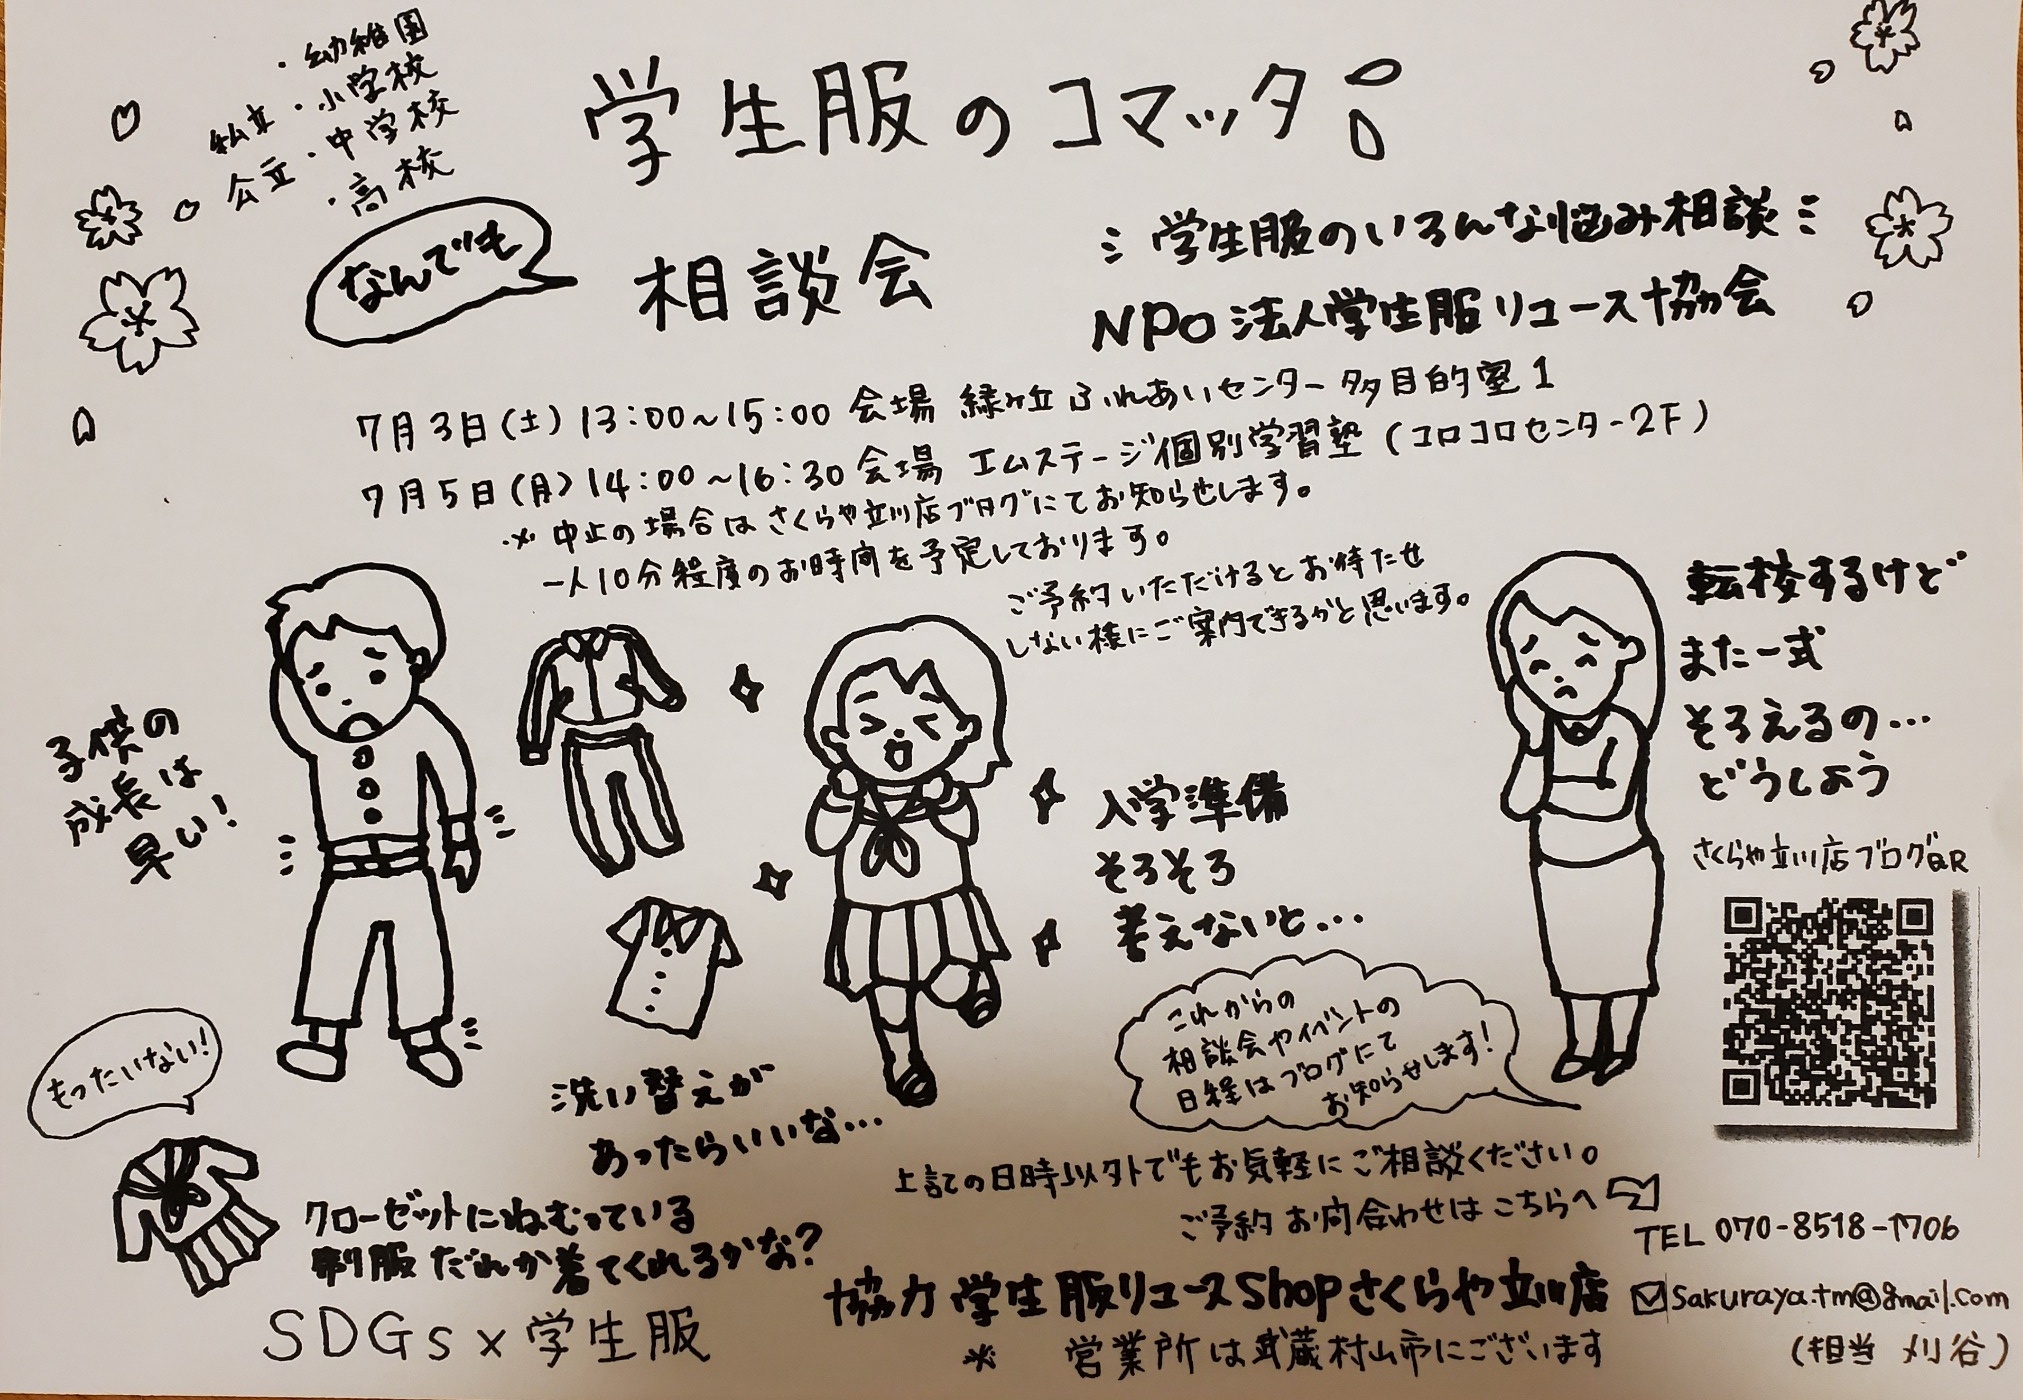 ・幼稚園
私立・小学校
公立・中学校
・高校
学生服のコマッタ!
なんでも
相談会
学生服のいろんな悩み相談
NPO法人学生服リユース協会
7月3日(土)13:00〜15:00 会場 緑が丘ふれあいセンター多目的室1
7月5日(月)14:00〜16:30 会場 エムステージ個別学習塾(コロコロセンター2F)
※中止の場合はさくらや立川店ブログにてお知らせします。
一人10分程度のお時間を予定しております。
ご予約いただけるとお待たせ
しない様にご案内できるかと思います。
子供の
成長は
早い!
転校するけど
また一式
そろえるの…
どうしよう
入学準備
そろそろ
考えないと…
さくらや立川店ブログQR
これからの
相談会やイベントの
日程はブログにて
お知らせします!
もったいない!
洗い替えが
あったらいいな…
クローゼットにねむっている
制服だれか着てくれるかな?
SDGs×学生服
上記の日時以外でもお気軽にご相談ください。
ご予約お問合わせはこちらへ
TEL 070-8518-1706
協力 学生服リユースShopさくらや立川店
sakuraya.tm@gmail.com
※ 営業所は武蔵村山市にございます
(担当 刈谷)